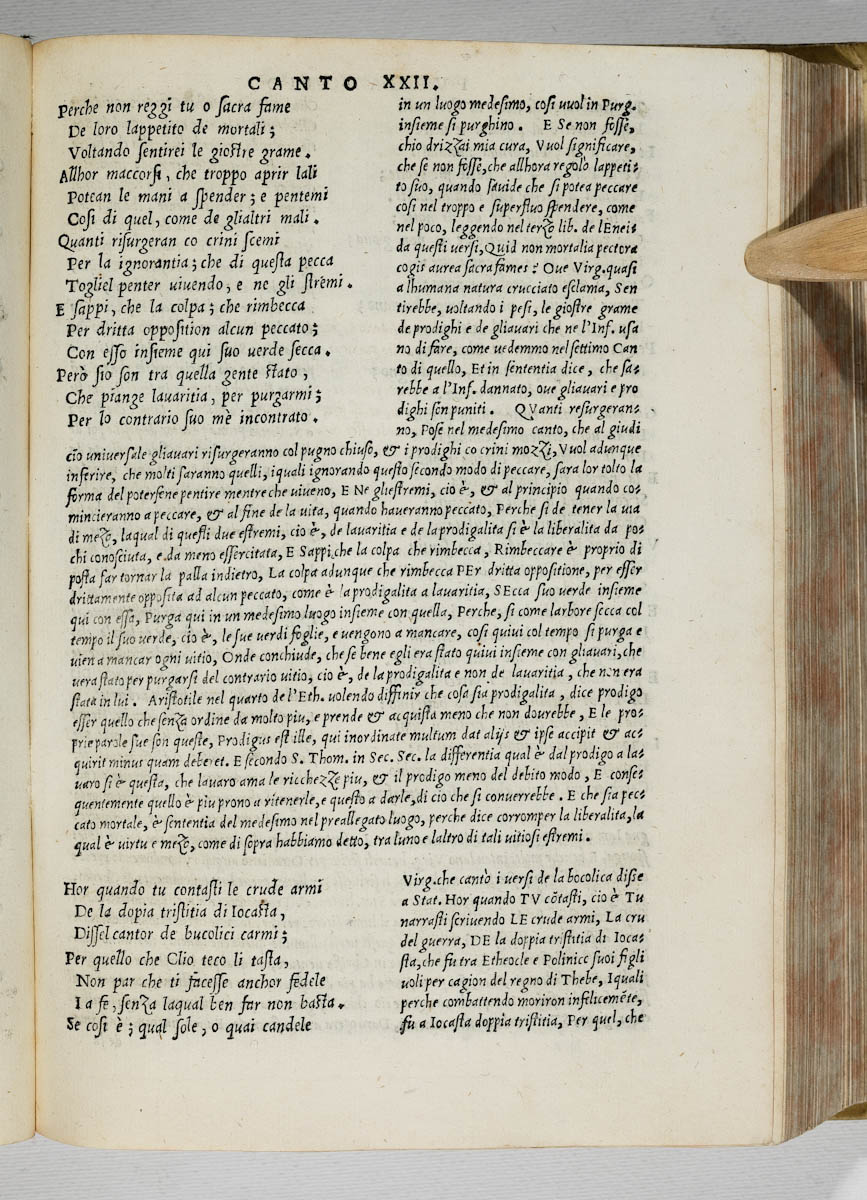 CANTO XXII.
Perche non reggi tu o sacra fame
De loro lappetito de mortali;
Voltando sentirei le giostre grame.
Allhor maccorsi, che troppo aprir lali
Potean le mani a spender; e pentemi
Cosi di quel, come de glialtri mali.
Quanti risurgeran co crini scemi
Per la ignorantia; che di questa pecca
Togliel penter uiuendo, e ne gli stremi.
E sappi, che la colpa; che rimbecca
Per dritta opposition alcun peccato;
Con esso insieme qui suo uerde secca.
Però sio son tra quella gente stato,
Che piange lauaritia, per purgarmi;
Per lo contrario suo mè incontrato.
in un luogo medesimo, cosi uuol in Purg.
insieme si purghino. E Se non fosse,
chio drizzai mia cura, Vuol significare,
che se non fosse, che allhora regolo lappeti-
to suo, quando sauide che si potea peccare
cosi nel troppo e superfluo spendere, come
nel poco, leggendo nel terzo lib. de lEnei-
da questi uersi, Quid non mortalia pectora
cogis aurea sacra fames? Oue Virg. quasi
a lhumana natura crucciato esclama, Sen
tirebbe, uoltando i pesi, le giostre grame
de prodighi e de gliauari che ne l'Inf. usa
no di fare, come uedemmo nel settimo Can
to di quello, Et in sententia dice, che sa-
rebbe a l'Inf. dannato, oue gliauari e pro
dighi sen puniti. QVanti resurgeran-
no, Pose nel medesimo canto, che al giudi
cio uniuersale gliauari risurgeranno col pugno chiuso, & i prodighi co crini mozzi, Vuol adunque
inferire, che molti saranno quelli, iquali ignorando questo secondo modo di peccare, sara lor tolto la
forma del potersene pentire mentre che uiueno, E Ne gliestremi, cio è, & al principio quando co-
mincieranno a peccare, & al fine de la uita, quando haueranno peccato, Perche si de tener la uia
di mezo, laqual di questi due estremi, cio è, de lauaritia e de la prodigalita si è la liberalita da po-
chi conosciuta, e da meno essercitata, E Sappi che la colpa che rimbecca, Rimbeccare è proprio di
posta far tornar la palla indietro, La colpa adunque che rimbecca PEr dritta oppositione, per esser
drittamente opposita ad alcun peccato, come è la prodigalita a lauaritia, SEcca suo uerde insieme
qui con essa, Purga qui in un medesimo luogo insieme con quella, Perche, si come larbore secca col
tempo il suo uerde, cio è, le sue uerdi foglie, e uengono a mancare, cosi quiui col tempo si purga e
uien a mancar ogni uitio, Onde conchiude, che se bene egli era stato quiui insieme con gliauari, che
uera stato per purgarsi del contrario uitio, cio è, de la prodigalita e non de lauaritia, che non era
stata in lui. Aristotile nel quarto de l'Eth. uolendo diffinir che cosa sia prodigalita, dice prodigo
esser quello che senza ordine da molto piu, e prende & acquista meno che non dourebbe, E le pro-
prie parole sue son queste, Prodigus est ille, qui inordinate multum dat alijs & ipse accipit & ac-
quirit minus quam deberet. E secondo S. Thom. in Sec. Sec. la differentia qual è dal prodigo a la-
uaro si è questa, che lauaro ama le ricchezze piu, & il prodigo meno del debito modo, E conse-
quentemente quello è piu prono a ritenerle, e questo a darle, di cio che si conuerrebbe. E che sia pec-
cato mortale, è sententia del medesimo nel preallegato luogo, perche dice corromper la liberalita, la
qual è uirtu e mezo, come di sopra habbiamo detto, tra luno e laltro di tali uitiosi estremi.
Hor quando tu contasti le crude armi
De la dopia tristitia di Iocasta,
Dissel cantor de bucolici carmi;
Per quello che Clio teco li tasta,
Non par che ti facesse anchor fedele
La fe, senza laqual ben far non basta.
Se cosi è; qual sole, o quai candele
Virg. che cantò i uersi de la bocolica disse
a Stat. Hor quando TV cõtasti, cio è Tu
narrasti scriuendo LE crude armi, La cru
del guerra, DE la doppia tristitia di Ioca-
sta, che fu tra Etheocle e Polinice suoi figli
uoli per cagion del regno di Thebe, Iquali
perche combattendo moriron infelicemẽte,
fu a Iocasta doppia tristitia, Per quel, che